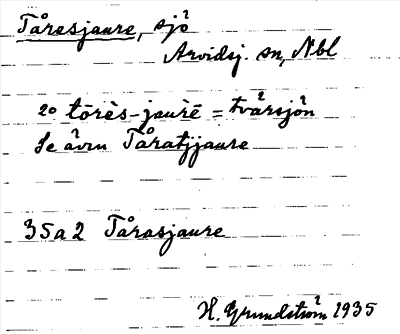 Tåresjaure, sjö
Arvidsj. sn, Nbl
20 tōrès-jaurē = tvärsjön
Se även Tåratjjaure
35a2 Tårasjaure
H. Grundström 1935